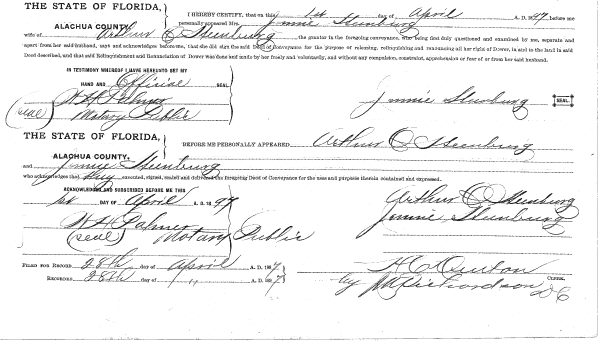 THE STATE OF FLORIDA,
ALACHUA COUNTY.
I HEREBY CERTIFY, that on this 1st day of April A. D. 1897 before me
personally appeared Mrs. Jimmie Steinburg
wife of Arthur C Steinburg the grantor in the foregoing conveyance, who being first duly questioned and examined by me, separate and
apart from her said husband, says and acknowledges before me, that she did sign the said Deed of Conveyance for the purpose of releasing, relinquishing and renouncing all her right of Dower, in and to the land in said
Deed described, and that said Relinquishment and Renunciation of Dower was done and made by her freely and voluntarily, and without any compulsion, constraint, apprehension or fear of or from her said husband.
IN TESTIMONY WHEREOF I HAVE HEREUNTO SET MY
HAND AND Official SEAL.
W H Palmer
(seal) Notary Public
Jimmie Steinburg SEAL.
THE STATE OF FLORIDA,
ALACHUA COUNTY.
BEFORE ME PERSONALLY APPEARED Arthur C Steinburg
and Jimmie Steinburg
who acknowledges that they executed, signed, sealed and delivered the foregoing Deed of Conveyance for the uses and purposes therein contained and expressed.
ACKNOWLEDGED AND SUBSCRIBED BEFORE ME THIS
1st DAY OF April A. D. 1897
W H Palmer
(seal) Notary Public
Arthur C Steinburg
Jimmie Steinburg
FILED FOR RECORD 28th day of April A. D. 1897
RECORDED 28th day of " A. D. 1897
H C Denton CLERK.
by Richardson D C